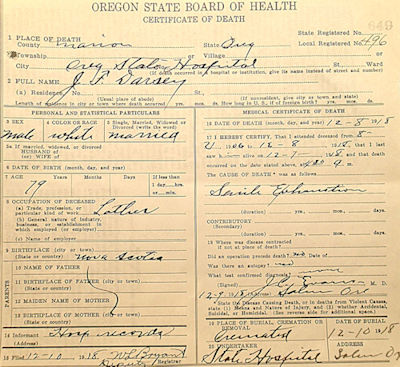 OREGON STATE BOARD OF HEALTH
CERTIFICATE OF DEATH
649
1 PLACE OF DEATH
State Registered No.
County Marion State Oreg Local Registered No. 496
Township or Village or
City Oreg State Hospital St. Ward
(If death occurred in a hospital or institution, give its name instead of street and number)
2 FULL NAME J F Darsey
(a) Residence No. St.
(Usual place of abode) (If nonresident, give city or town and state)
Length of residence in city or town where death occurred yrs. mos. ds. How long in U. S., if of foreign birth? yrs. mos. ds.
PERSONAL AND STATISTICAL PARTICULARS
3 SEX 4 COLOR OR RACE 5 Single, Married, Widowed or Divorced (write the word)
Male White Married
5a If married, widowed, or divorced
HUSBAND of
(or) WIFE of
6 DATE OF BIRTH (month, day, and year)
7 AGE Years Months Days If less than 1 day, hrs. or min.
79
8 OCCUPATION OF DECEASED
(a) Trade, profession, or particular kind of work
(b) General nature of industry, business, or establishment in which employed (or employer)
(c) Name of employer
9 BIRTHPLACE (city or town)
(State or country) Nova Scotia
10 NAME OF FATHER
11 BIRTHPLACE OF FATHER
(State or country)
12 MAIDEN NAME OF MOTHER
13 BIRTHPLACE OF MOTHER
(State or country)
14 Informant Hosp records
(Address)
15 Filed 12-10 1918 W L Bryant
Deputy Registrar
MEDICAL CERTIFICATE OF DEATH
16 DATE OF DEATH (month, day, and year) 12-8 1918
17 I HEREBY CERTIFY, That I attended deceased from 8-
to 12-8 1918, that I last
saw h alive on 12-7 1918, and that death
occurred on the date stated above, at
The CAUSE OF DEATH* was as follows:
Senile Exhaustion
(duration) yrs. mos. days.
CONTRIBUTORY
(Secondary)
(duration) yrs. mos. days.
18 Where was disease contracted
if not at place of death?
Did an operation precede death? no Date of
Was there an autopsy? no
What test confirmed diagnosis?
(Signed) Evans M. D.
12-9 1918 (Address) Salem Ore
*State the Disease Causing Death, or in deaths from Violent Causes, state (1) Means and Nature of Injury, and (2) whether Accidental, Suicidal, or Homicidal. (See reverse side for additional space.)
19 PLACE OF BURIAL, CREMATION OR REMOVAL DATE OF BURIAL
Cremated 12-10 1918
20 UNDERTAKER ADDRESS
State Hospital Salem Or